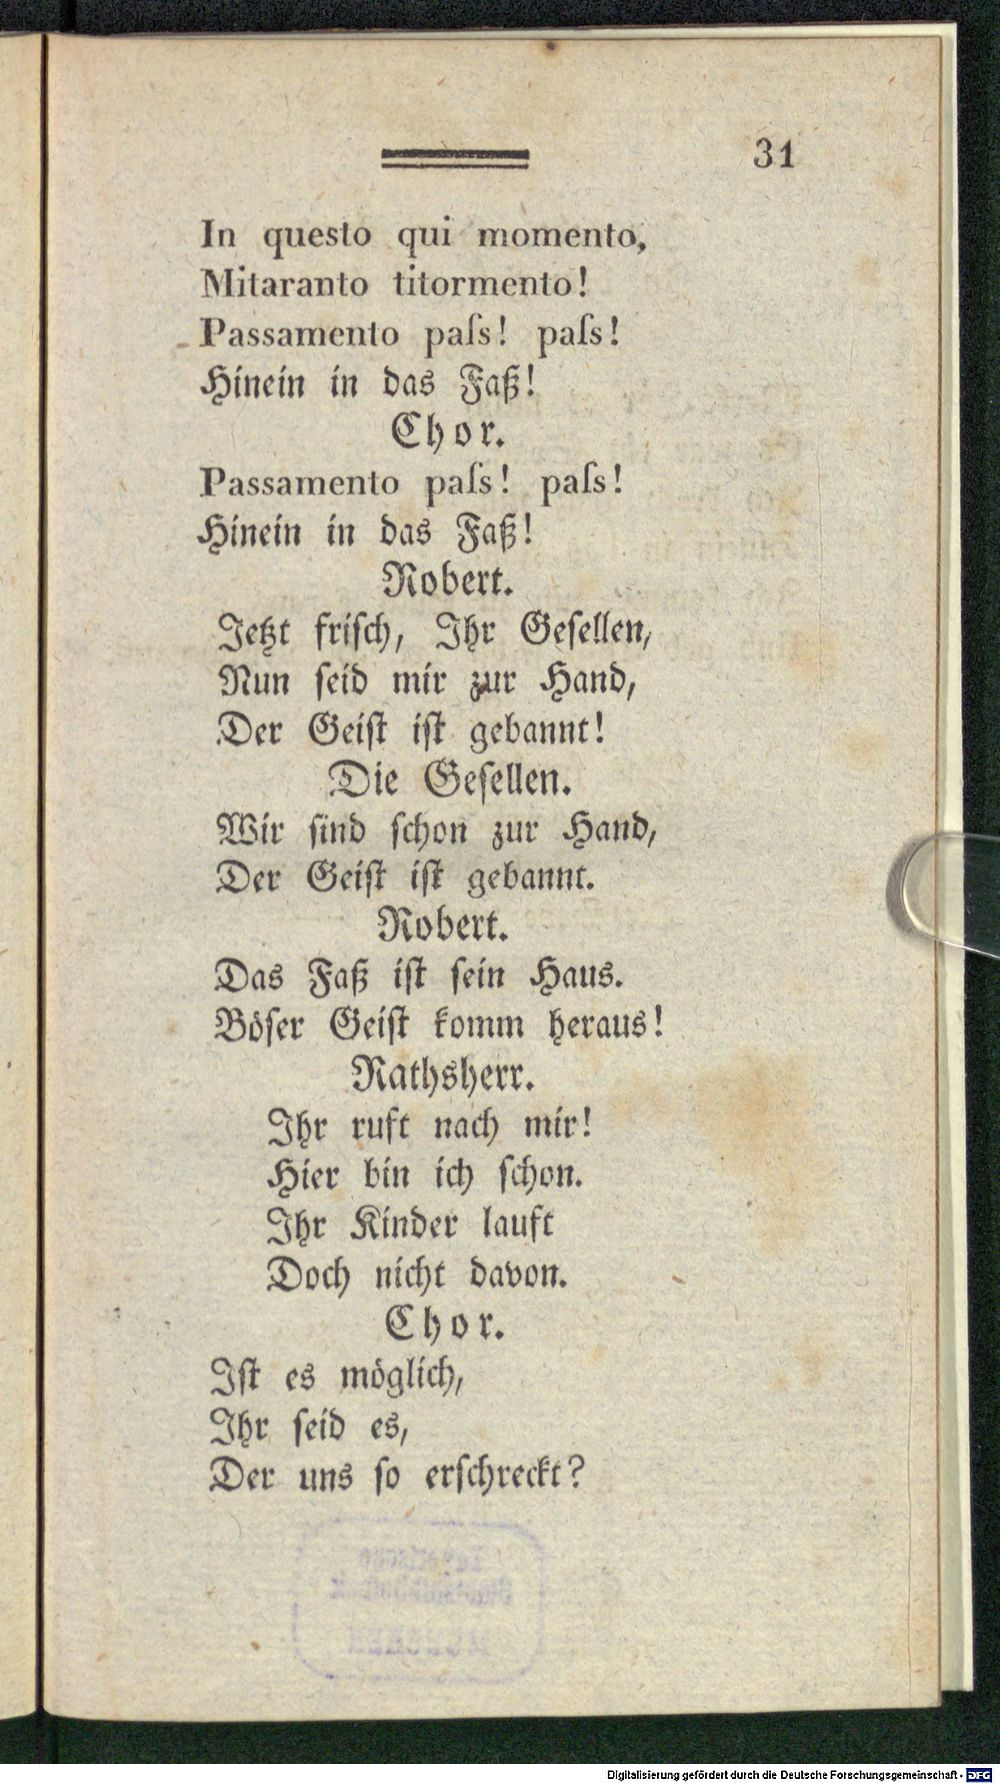 31
In questo qui momento,
Mitaranto titormento!
Passamento paſs! paſs!
Hinein in das Faß!
Chor.
Passamento paſs! paſs!
Hinein in das Faß!
Robert.
Jetzt friſch, Ihr Geſellen,
Nun ſeid mir zur Hand,
Der Geiſt iſt gebannt!
Die Geſellen.
Wir ſind ſchon zur Hand,
Der Geiſt iſt gebannt.
Robert.
Das Faß iſt ſein Haus.
Böſer Geiſt komm heraus!
Rathsherr.
Ihr ruft nach mir!
Hier bin ich ſchon.
Ihr Kinder lauft
Doch nicht davon.
Chor.
Iſt es möglich,
Ihr ſeid es,
Der uns ſo erſchreckt?
Digitalisierung gefördert durch die Deutsche Forschungsgemeinschaft - DFG